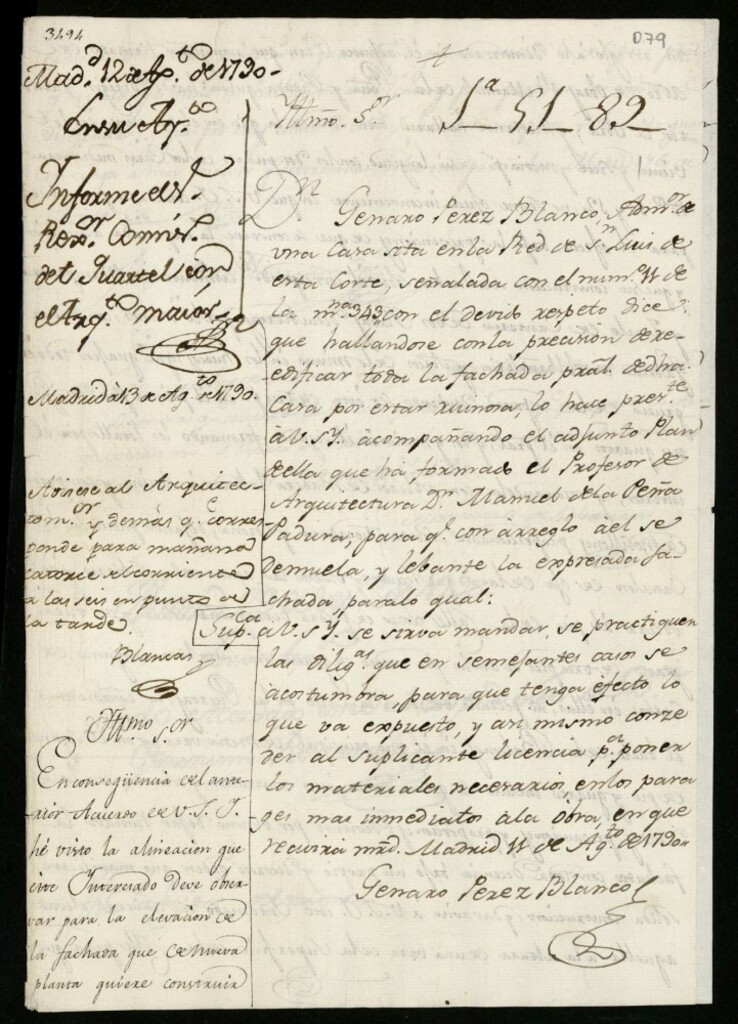 3494
D79
Mad.d 12 de Ag.to de 1790.
En su Ay.to
Informe el S.r
Rex.or Comis.
del Quartel con
el Arq.to maior.
Madrid à 13 de Ag.to de 1790.
Avisese al Arquitec-
to m.or y demás q.e corres
ponde para mañana
catorce del corriente
à las seis en punto de
la tarde.
Blancas
Ittmo s.or
En conseqüencia del ante-
rior Acuerdo de V. S. I.
hé visto la alineacion que
este Interesado deve obser
var para la elevacion de
la fachada que de nueva
planta quiere construir
Ittmo. S.or
1a 51 82
D.n Genaro Perez Blanco, Adm.or de
una Casa sita en la Red de S.n Luis de
esta Corte, señalada con el num.o 11 de
la m.na 343, con el devido respeto dice:
que hallandose con la precision de re-
edificar toda la fachada pral. de dha
Casa por estar ruinosa, lo hace pres.te
à V. S. Y. acompañando el adjunto Plan
de ella que há formado el Profesor de
Arquitectura D.n Manuel de la Peña
Padura; para q.e con àrreglo àel se
demuela, y lebante la expresada fa-
chada, para lo qual:
Sup.ca a V. S. Y. se sirva mandar, se practiquen
las dilig.as que en semejantes casos se
àcostumbra, para que tenga efecto lo
que va expuesto, y asi mismo conze
der al suplicante licencia p.a poner
los materiales necesarios, en los para
ges mas inmediatos a la òbra, en que
recivirá mrd. Madrid 11 de Ag.to de 1790.
Genaro Perez Blanco